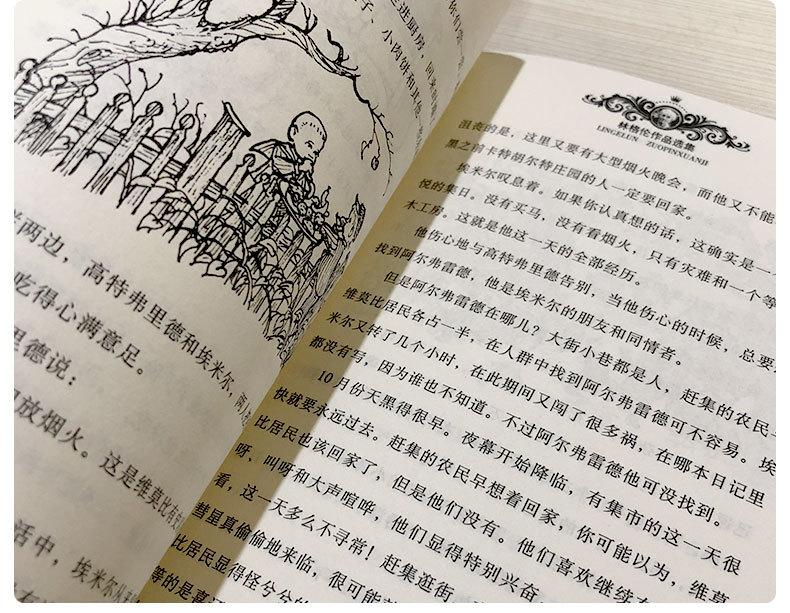 们
子、小肉饼和其他
进厨房，
两边，高特弗里德和埃米尔，两人
吃得心满意足。
里德说：
放烟火。这是维莫比有史
活中，埃米尔从
林格伦作品选集
LINGELUN ZUOPINXUANJI
沮丧的是，这里又要有大型烟火晚会，而他又不能
黑之前卡特胡尔特庄园的人一定要回家。
埃米尔叹息着。如果你认真想的话，这确实是一个
悦的集日。没有买马，没有看烟火，只有灾难和一个等
木工房。这就是他这一天的全部经历。
他伤心地与高特弗里德告别，当他伤心的时候，总要
找到阿尔弗雷德，他是埃米尔的朋友和同情者。
但是阿尔弗雷德在哪儿？大街小巷都是人，赶集的农民
维莫比居民各占一半，在人群中找到阿尔弗雷德可不容易。埃
米尔又转了几个小时，在此期间又闯了很多祸，在哪本日记里
都没有写，因为谁也不知道。不过阿尔弗雷德他可没找到。
10月份天黑得很早。夜幕开始降临，有集市的这一天很
快就要永远过去。赶集的农民早想着回家，你可能以为，维莫
比居民也该回家了，但是他们没有。他们喜欢继续
呀，叫呀和大声喧哗，他们显得特别兴奋
看，这一天多么不寻常！赶集逛街
彗星真偷偷地来临，很可能就
比居民显得怪兮兮的
等的是喜